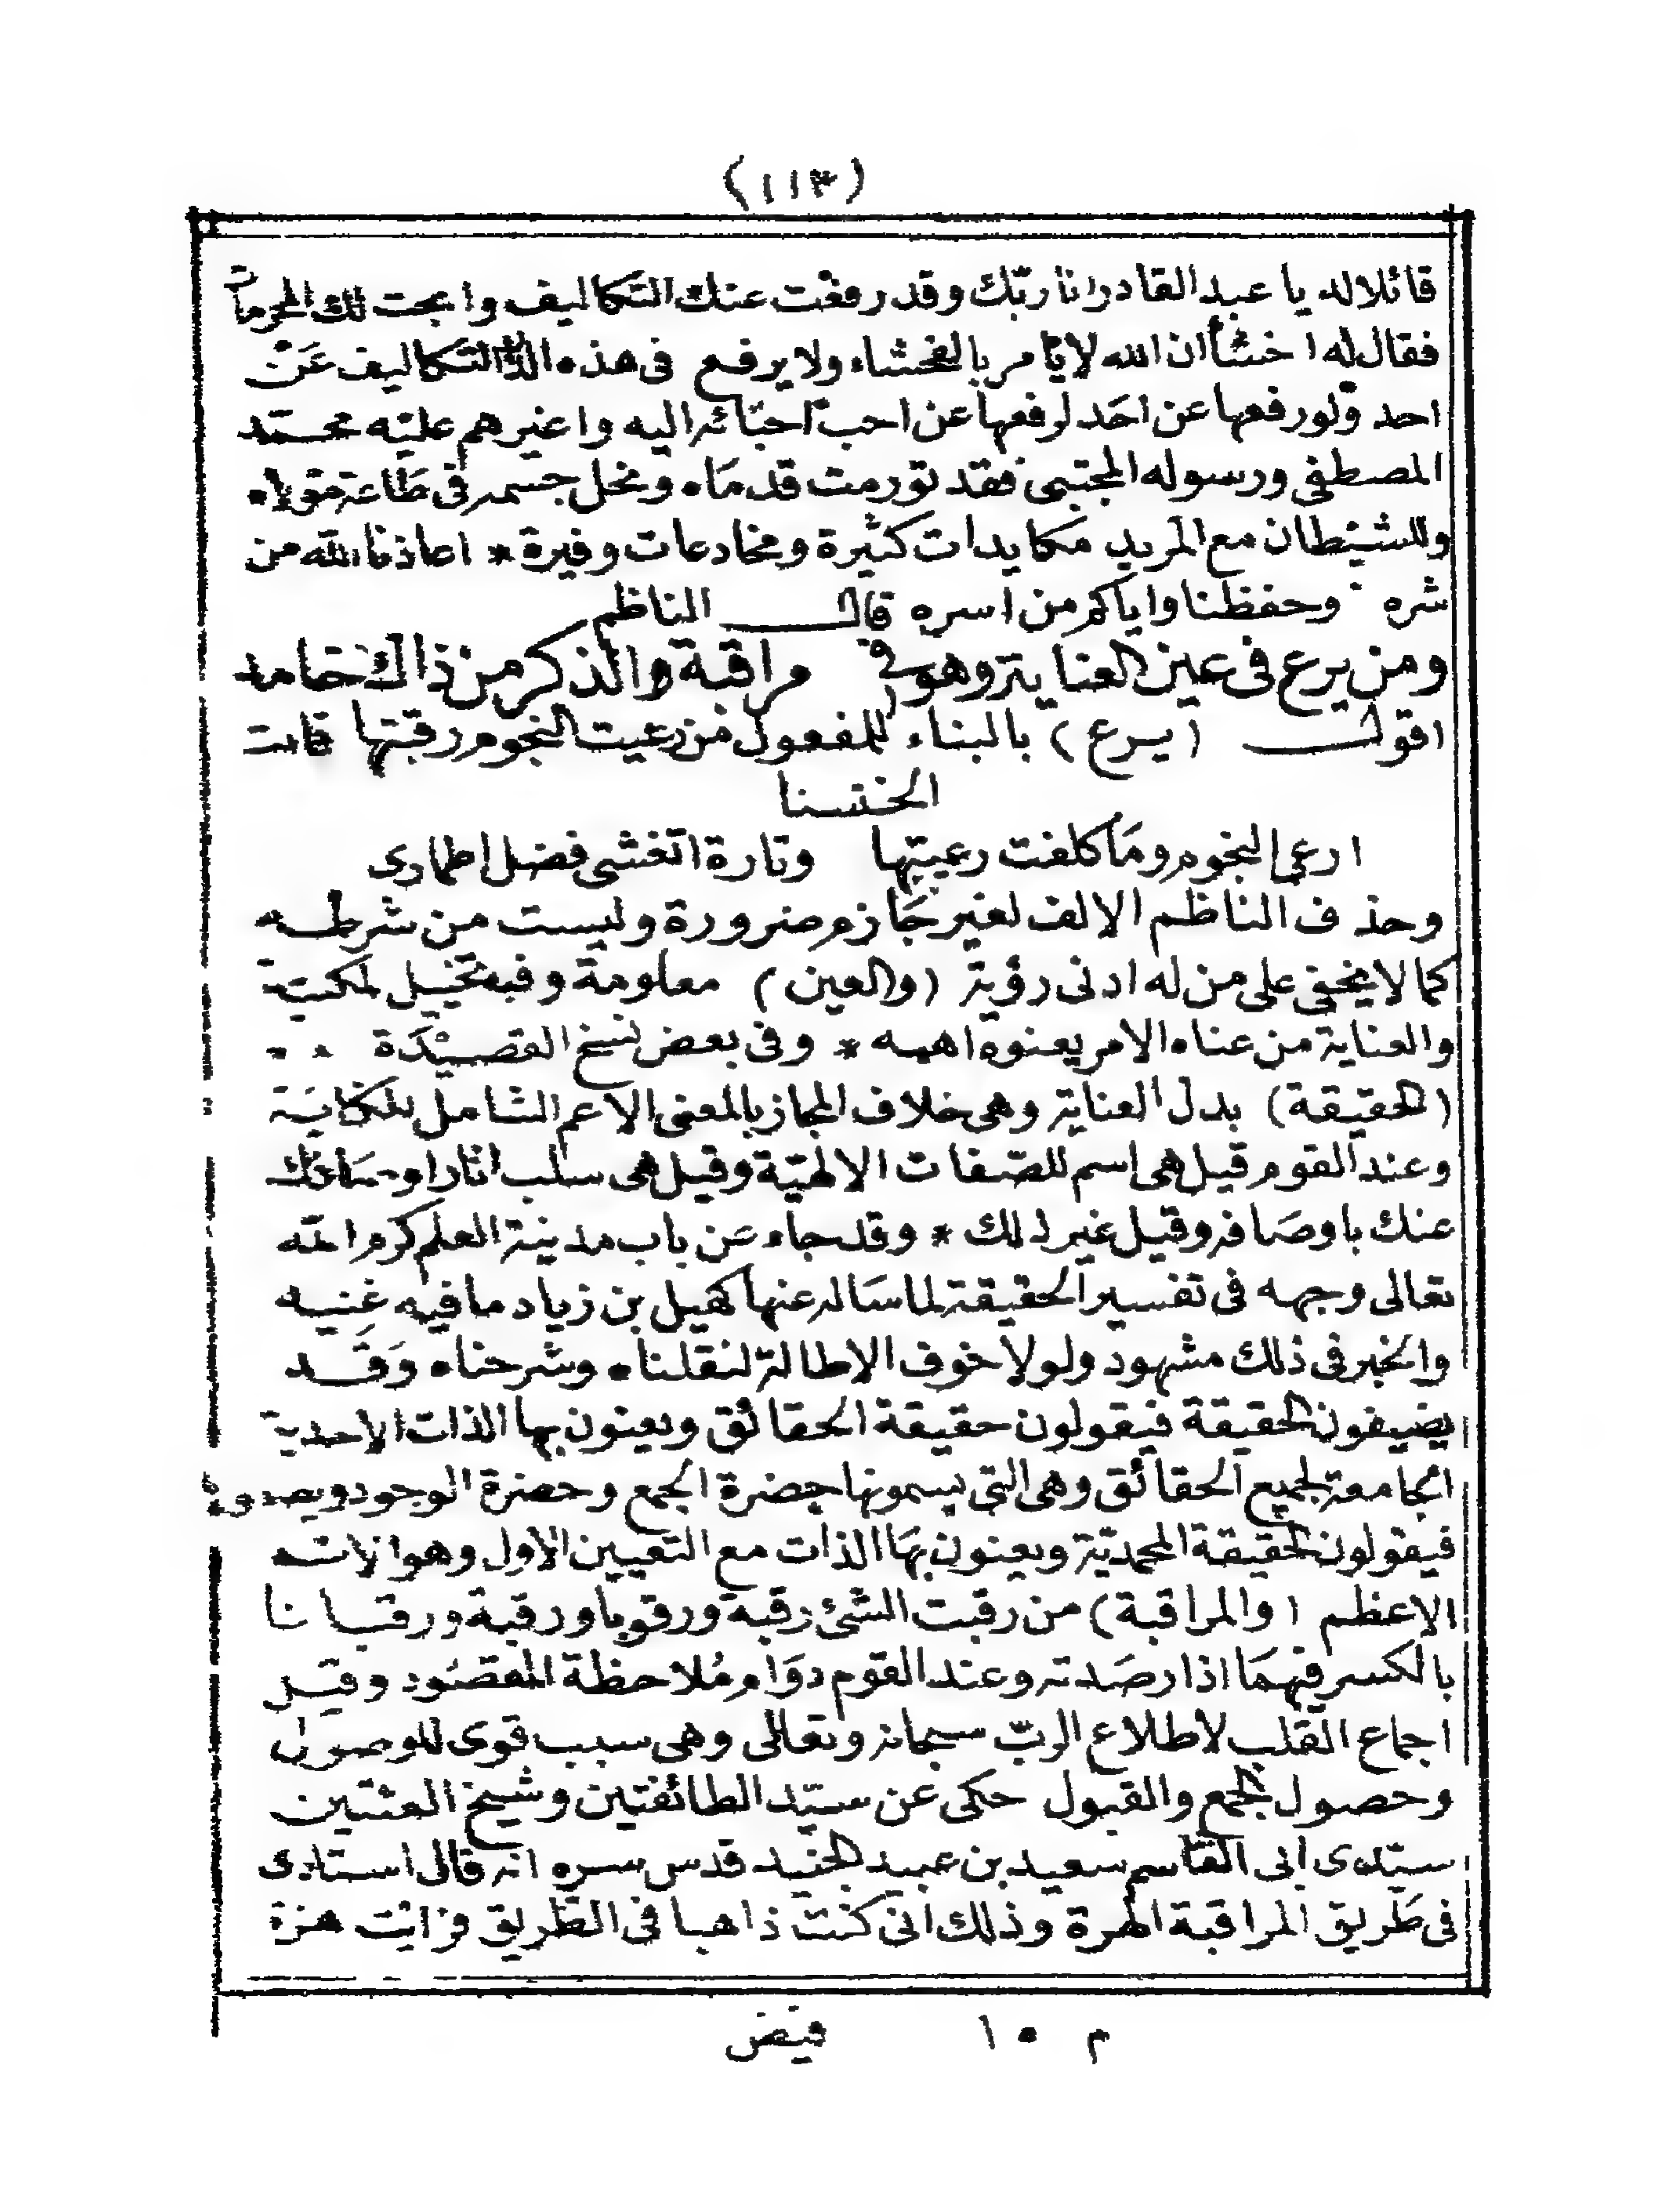 (١١٣)
قائلا له يا عبد القادر انا ربّك وقد رفعت عنك التكاليف وابحت لك المحرمات
فقال له اخسأ ان الله لا يأمر بالفحشاء ولا يرفع فى هذه الدار التكاليف عن
احد ولو رفعها عن احد لرفعها عن احب احبائه اليه واعزهم عليه محمد
المصطفى ورسوله المجتبى فقد تورمت قدماه ونحل جسمه فى طاعة مولاه
وللشيطان مع المريد مكايدات كثيرة ومخادعات وفيرة * اعاذنا الله من
شره وحفظنا واياكم من اسره قال الناظم
ومن يرع فى عين العناية وهو فى مراقبة والذكر من ذاك خامد
اقول (يرع) بالبناء للمفعول من رعيت النجوم رقبتها قالت
الخنسا
ارعى النجوم وما كلفت رعيتها وتارة اتغشى فضل اطمارى
وحذف الناظم الالف لغير جازم ضرورة وليست من شرطه
كما لا يخفى على من له ادنى رؤية (والعين) معلومة وفيه تخييل لمكنية
والعناية من عناه الامر يعنوه اهمه * وفى بعض نسخ القصيدة
(الحقيقة) بدل العناية وهى خلاف المجاز بالمعنى الاعم الشامل للكناية
وعند القوم قيل هى اسم للصفات الالهيّة وقيل هى سلب اثار اوصافك
عنك باوصافه وقيل غير ذلك * وقد جاء عن باب مدينة العلم كرم الله
تعالى وجهه فى تفسير الحقيقة لما ساله عنها كميل بن زياد ما فيه غنيه
والخبر فى ذلك مشهود ولولا خوف الاطالة لنقلناه وشرحناه وقد
يضيفون الحقيقة فيقولون حقيقة الحقائق ويعنون بها الذات الاحدية
الجامعة لجميع الحقائق وهى التى يسمونها حضرة الجمع وحضرة الوجود ويصفونها
فيقولون الحقيقة المحمديّة ويعنون بها الذات مع التعيين الاول وهو الاسم
الاعظم (والمراقبة) من رقبت الشئ رقبة ورقوبا ورقبة ورقبانا
بالكسر فيهما اذا رصدته وعند القوم دوام ملاحظة المقصود وقيل
اجماع القلب لاطلاع الربّ سبحانه وتعالى وهى سبب قوى للوصول
وحصول الجمع والقبول حكى عن سيّد الطائفتين وشيخ الفئتين
سيّدى ابى القاسم سعيد بن عبيد الجنيد قدس سره انه قال استاذى
فى طريق المراقبة الهرة وذلك انى كنت ذاهبا فى الطريق فرايت هرة
م ١٥ فيض